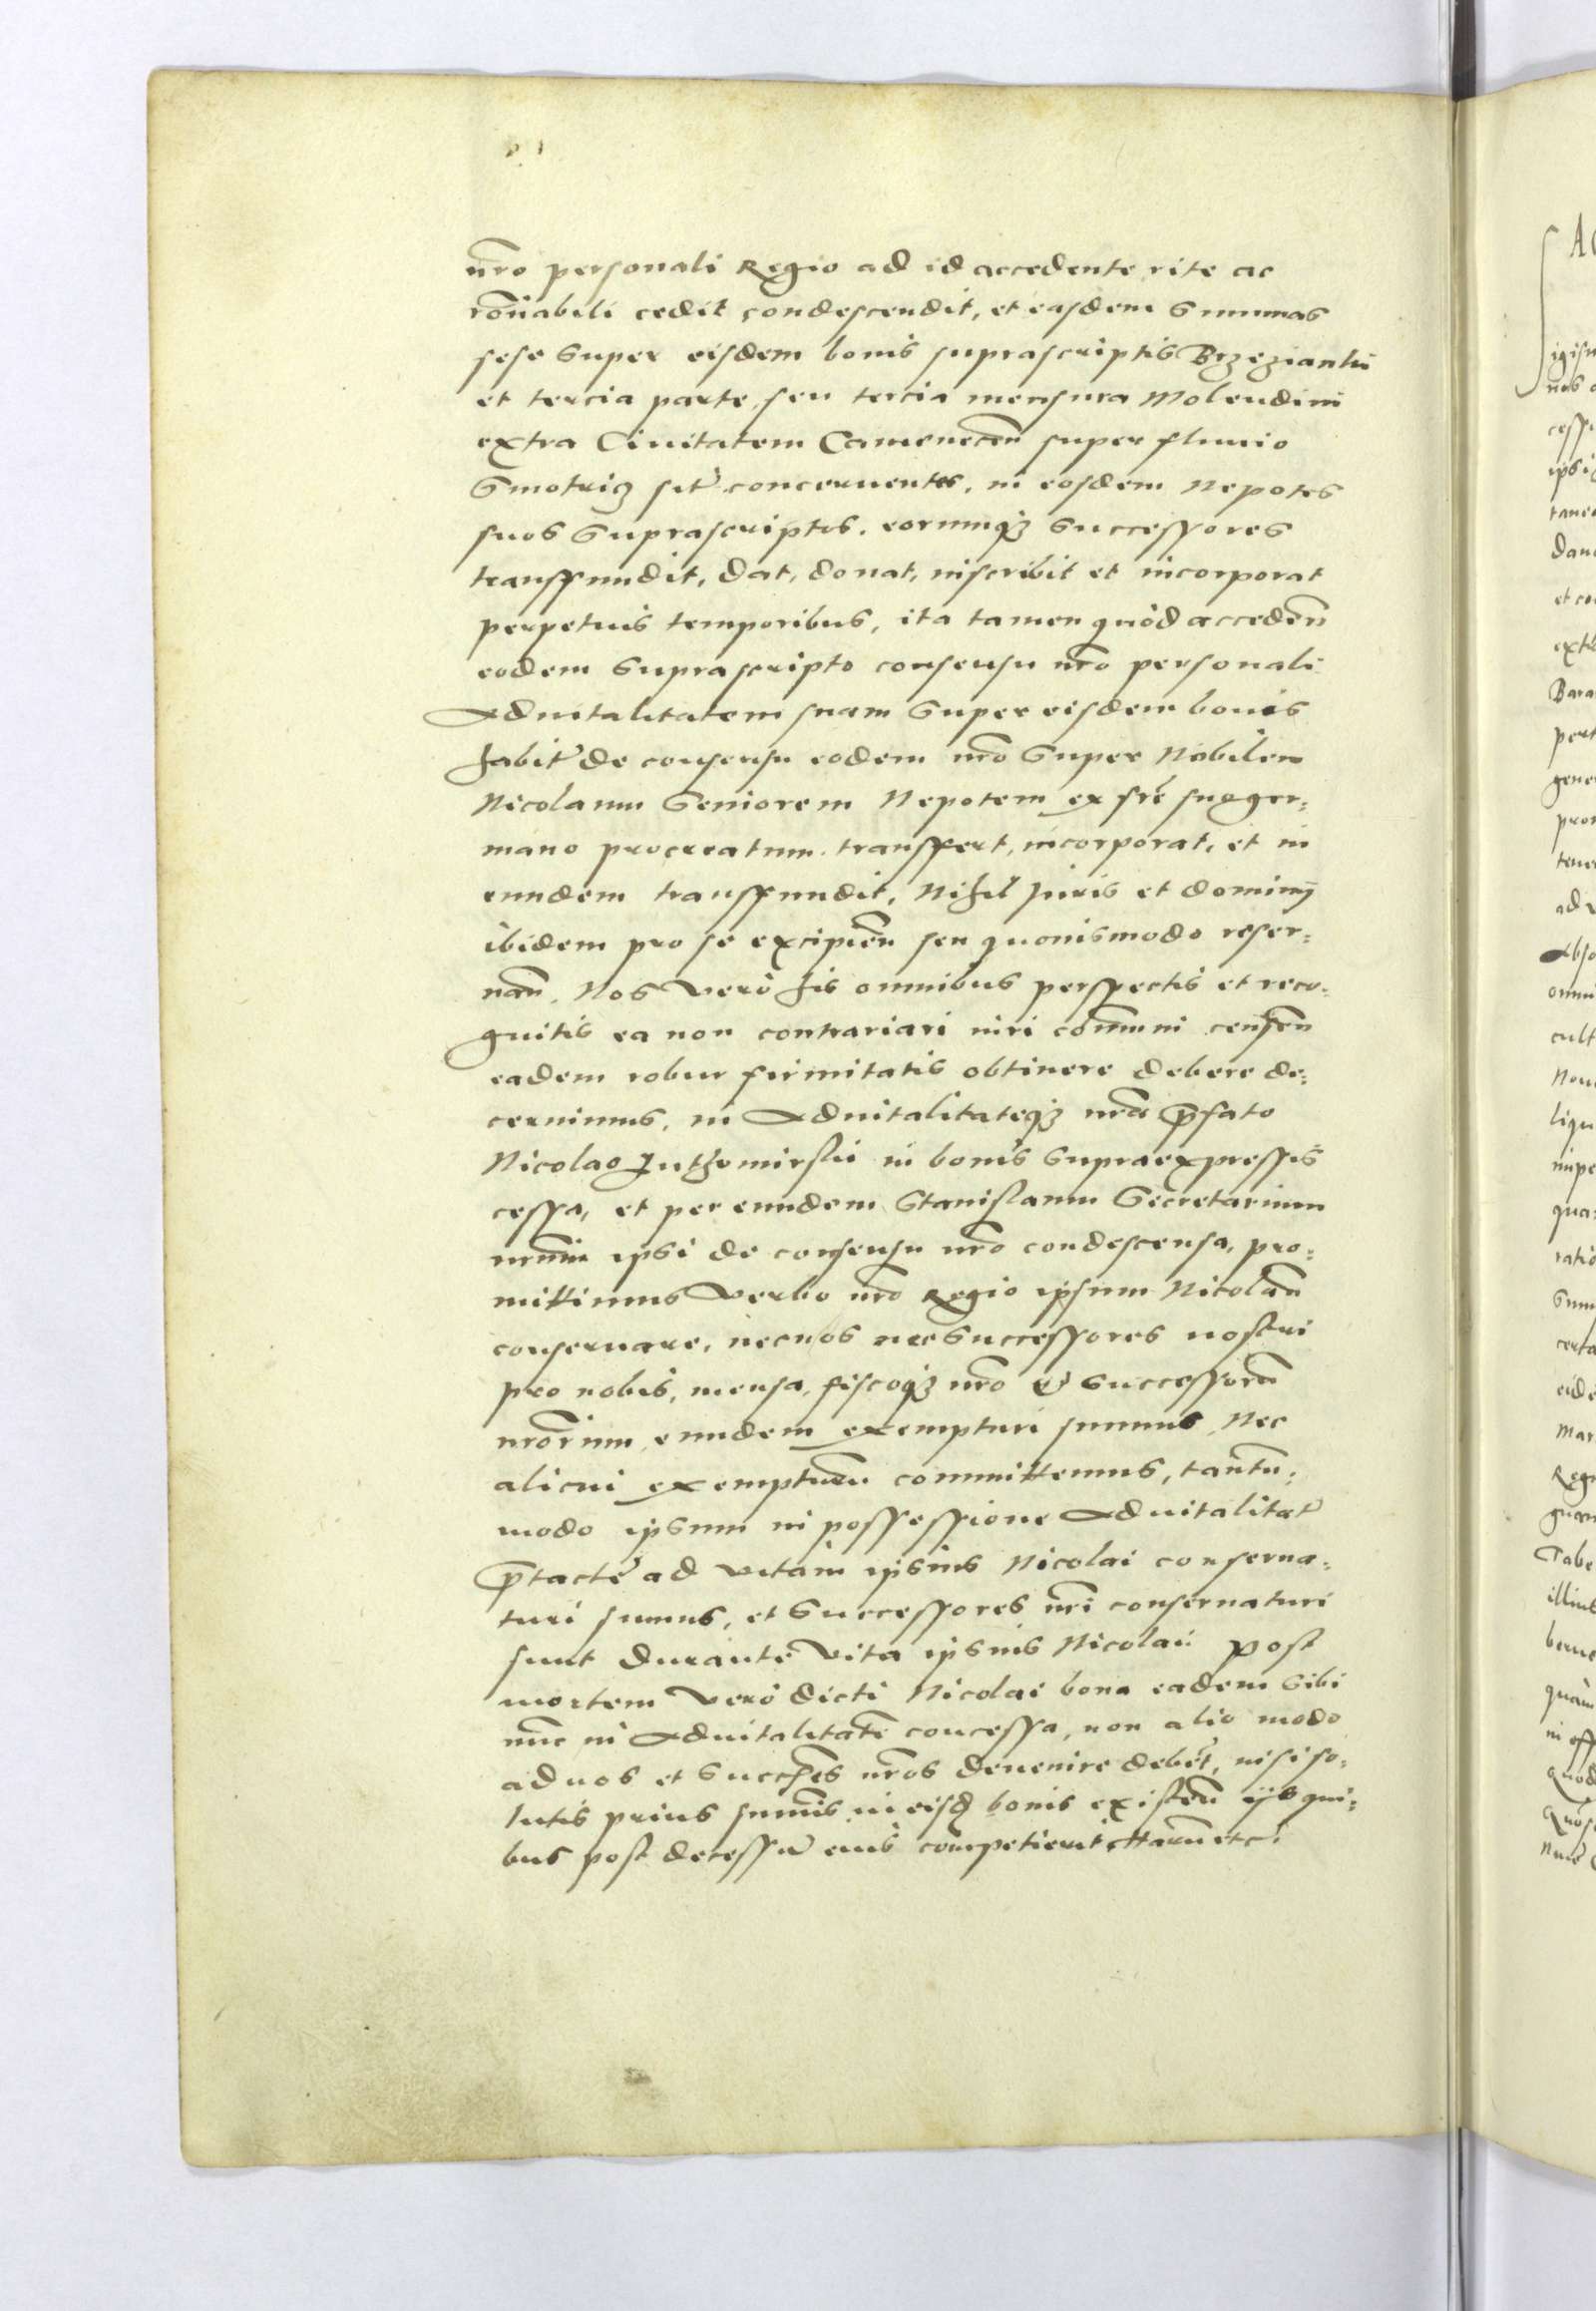 nr̃o personali Regio ad id accedente rite ac
rõnabili cedit condescendit, et easdem Summas
sese super eisdem bonis suprascriptis Brzezianki
et tercia parte, seu tercia mensura Molendini
extra Ciuitatem Camenecen̄ super fluuio
Smotricz sit̃ concernentes, in eosdem Nepotes
suos Suprascriptos, eorumqꝫ Successores
transfundit, dat, donat, inscribit et incorporat
perpetuis temporibus, ita tamen quòd acceden̄
eodem Suprascripto consensu nr̃o personali
Aduitalitatem suam Super eisdem bonis
habit̃ de consensu eodem nr̃o Super Nobilem
Nicolaum Seniorem Nepotem ex fr̃e suo ger:
mano procreatum. transfert, incorporat, et in
eundem transfundit, Nihil Iuris et dominij
ibidem pro se excipien̄ seu quouismodo reser:
uan̄. Nos verò his omnibus perspectis et reco:
gnitis ea non contrariari iuri cōmuni censen̄
eadem robur firmitatis obtinere debere de:
cernimus, in Aduitalitateqꝫ nr̃a p̄fato
Nicolao Luthomirski in bonis supraexpressis
cessa, et per eundem Stanislaum Secretarium
nr̃um ipsi de consensu nr̃o condescensa, pro:
mittimus Verbo nr̃o Regio ipsum Nicolaū
conseruare, nec nos nec Successores nostri
pro nobis, mensa, fiscoqꝫ nr̃o et Successorū
nr̃orum, eundem exempturi sumus, Nec
alicui exempturū committemus, tantū:
modo ipsum in possessione Aduitalitat̃
p̄tacte ad vitam ipsius Nicolai conserua:
turi sumus, et Successores nr̃i conseruaturi
sunt durante vita ipsius Nicolai. Post
mortem verò dicti Nicolai bona eadem sibi
nunc in Aduitalitatē concessa, non alio modo
ad nos et Succ̃es nr̃os deuenire debēt, nisi so:
lutis prius sum̄is in eisdꝫ bonis existen̄ ijs qui:
bus post decessū eius competierit, Harum etc.